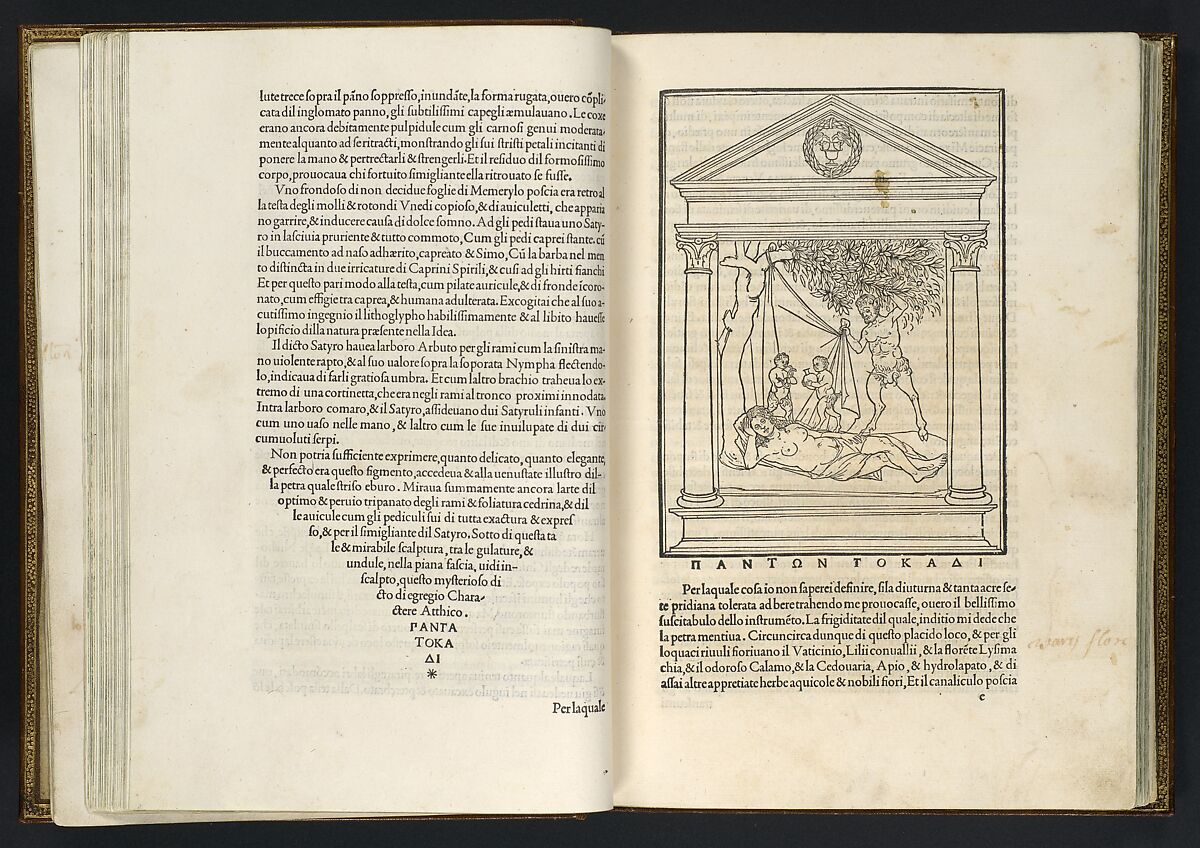 lute trece sopra il pãno soppresso, inundãte, la forma rugata, ouero cõpli-
cata dil inglomato panno, gli subtilissimi capegli æmulauano. Le coxe
erano ancora debitamente pulpidule cum gli carnosi genui moderata-
mente alquanto ad se ritracti, monstrando gli sui stristi petali incitanti di
ponere la mano & pertrectarli & strengerli. Et il residuo dil formosissimo
corpo, prouocaua chi fortuito simigliante ella ritrouato se fusse.
Vno frondoso di non decidue foglie di Memerylo poscia era retro al
la testa degli molli & rotondi Vnedi copioso, & di auiculetti, che apparia
no garrire, & inducere causa di dolce somno. Ad gli pedi staua uno Saty-
ro in lasciuia pruriente & tutto commoto, Cum gli pedi caprei stante. cũ
il buccamento ad naso adhærito, capreato & Simo, Cũ la barba nel men
to distincta in due irricature di Caprini Spirili, & cusi ad gli hirti fianchi
Et per questo pari modo alla testa, cum pilate auricule, & di fronde icoro-
nato, cum effigie tra caprea, & humana adulterata. Excogitai che al suo a-
cutissimo ingegnio il lithoglypho habilissimamente & al libito hauesse
lopificio dilla natura præsente nella Idea.
Il dicto Satyro hauea larboro Arbuto per gli rami cum la sinistra ma-
no uiolente rapto, & al suo ualore sopra la soporata Nympha flectendo-
lo, indicaua di farli gratiosa umbra. Et cum laltro brachio traheua lo ex-
tremo di una cortinetta, che era negli rami al tronco proximi innodata.
Intra larboro comaro, & il Satyro, assideuano dui Satyruli infanti. Vno
cum uno uaso nelle mano, & laltro cum le sue inuilupate di dui cir
cumuoluti serpi.
Non potria sufficiente exprimere, quanto delicato, quanto elegante,
& perfecto era questo figmento, accedeua & alla uenustate illustro dil-
la petra quale striso eburo. Miraua summamente ancora larte dil
optimo & peruio tripanato degli rami & foliatura cedrina, & dil
le auicule cum gli pediculi sui di tutta exactura & expres
so, & per il simigliante dil Satyro. Sotto di questa ta
le & mirabile scalptura, tra le gulature, &
undule, nella piana fascia, uidi in-
scalpto, questo mysterioso di
cto di egregio Chara-
ctere Atthico.
ΠΑΝΤΑ
ΤΟΚΑ
ΔΙ
*
Per laquale
ΠΑΝΤΩΝ ΤΟΚΑΔΙ
Per laquale cosa io non saperei definire, si la diuturna & tanta acre se-
te pridiana tolerata ad bere trahendo me prouocasse, ouero il bellissimo
suscitabulo dello instrumẽto. La frigiditate dil quale, inditio mi dede che
la petra mentiua. Circuncirca dunque di questo placido loco, & per gli
loquaci riuuli fioriuano il Vaticinio, Lilii conuallii, & la florẽte Lysima
chia, & il odoroso Calamo, & la Cedouaria, Apio, & hydrolapato, & di
assai altre appretiate herbe aquicole & nobili fiori, Et il canaliculo poscia
e